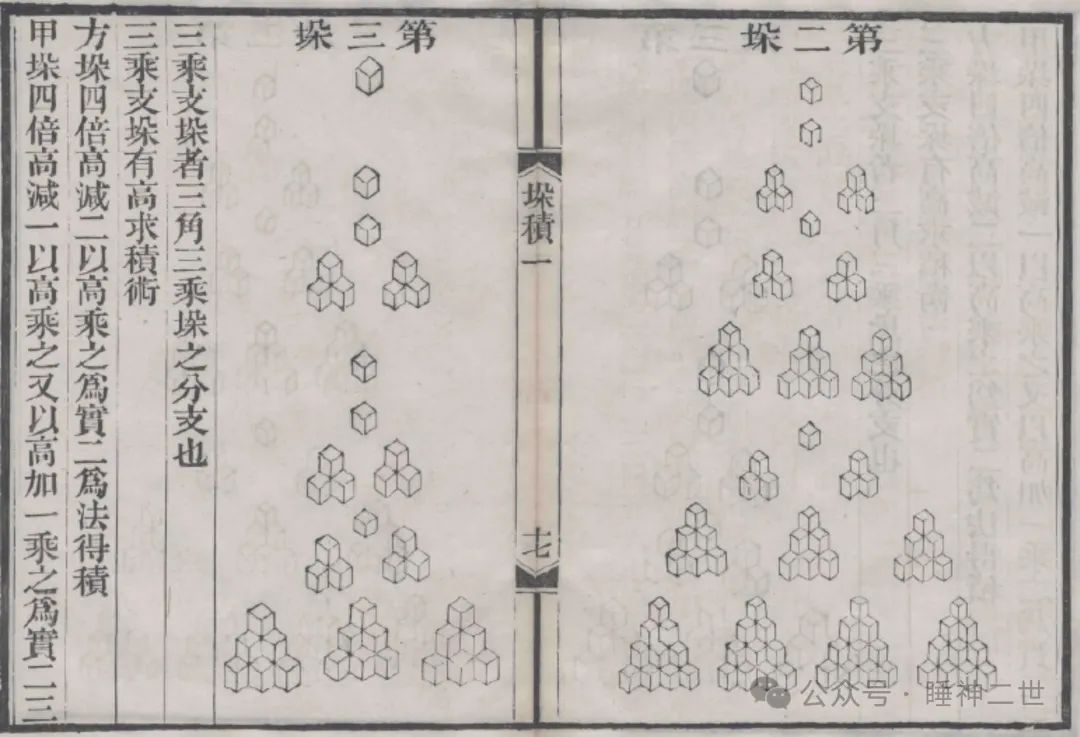 第二垛
垛積一
十七
第三垛
三乘支垛者三角三乘垛之分支也
三乘支垛有高求積術
方垛四倍高減二以高乘之爲實二爲法得積
甲垛四倍高減一以高乘之又以高加一乘之爲實二三
公众号·睡神二世